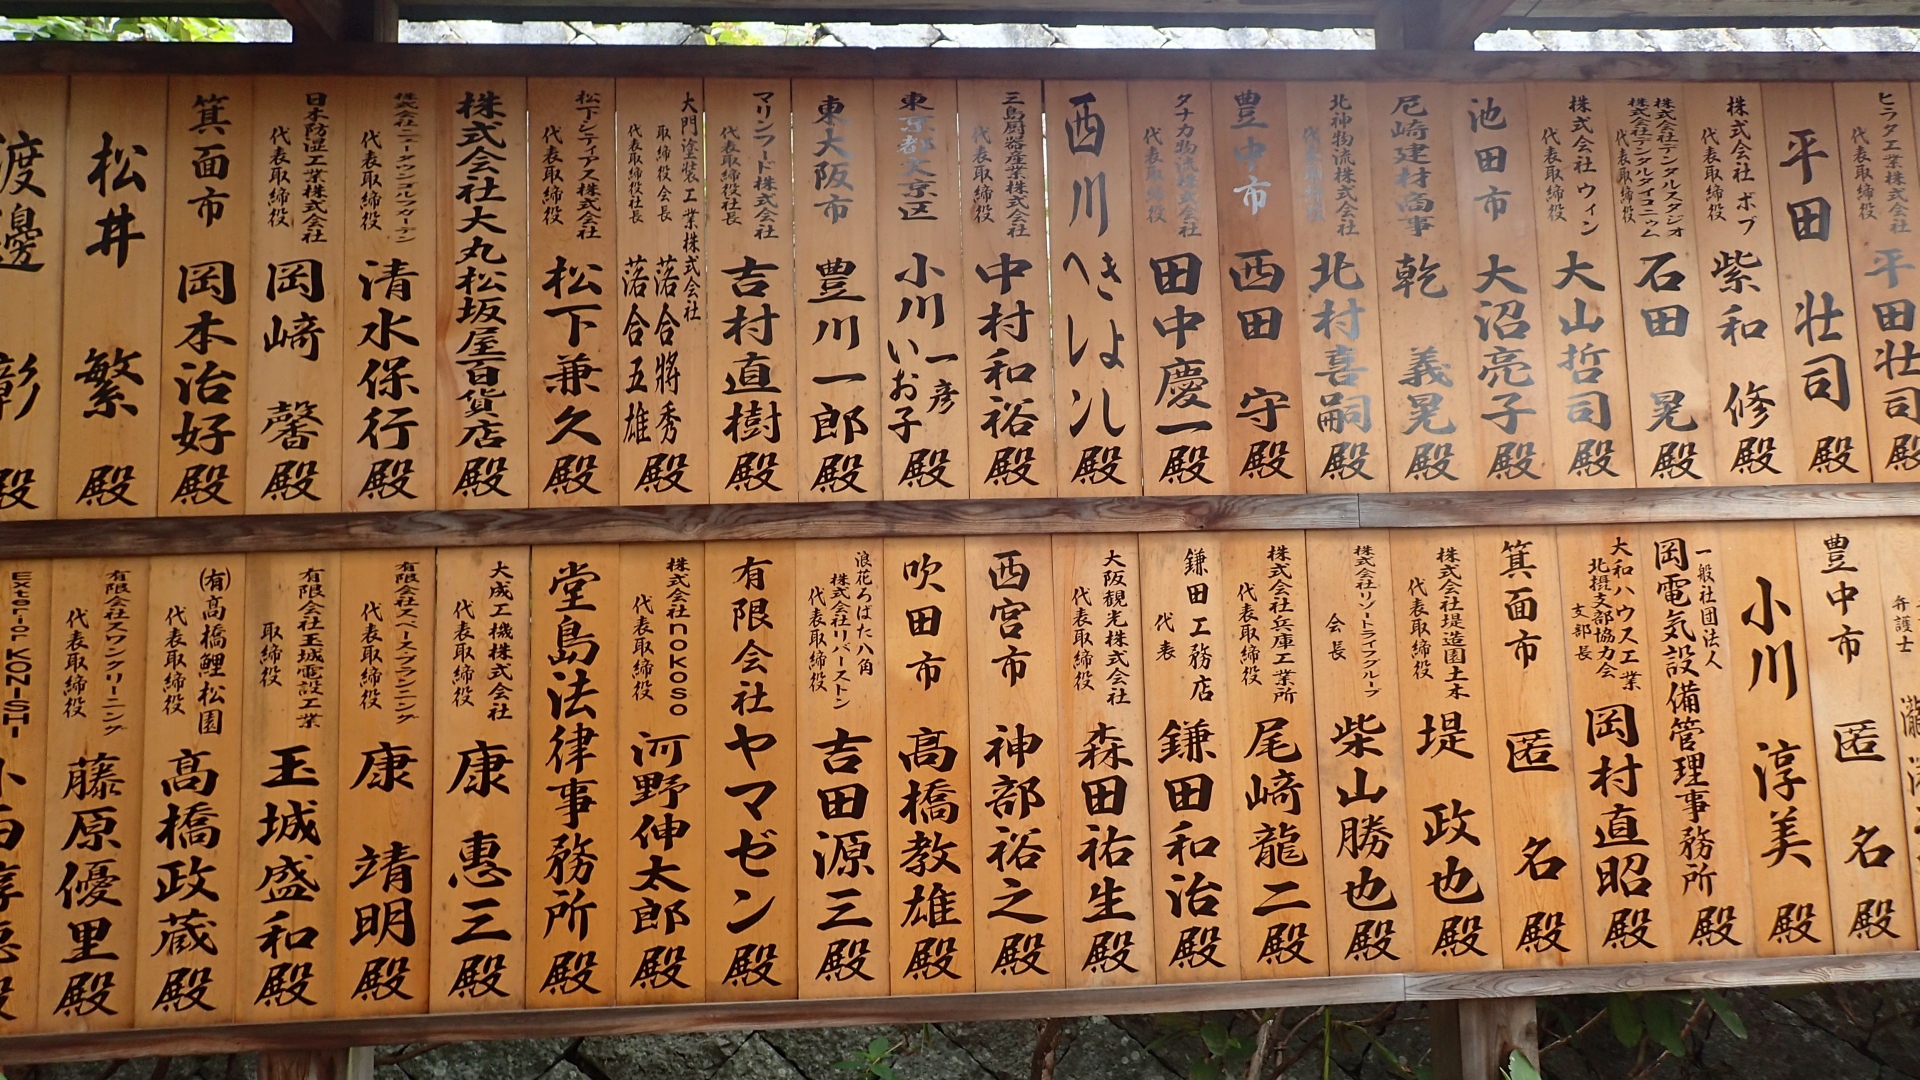 ヒラタ工業株式会社
代表取締役
平田壮司 殿
平田壮司 殿
株式会社ボブ
代表取締役
紫和修 殿
株式会社デンタルスタジオ
株式会社デンタルダイコニウム
代表取締役
石田晃 殿
株式会社ウィン
代表取締役
大山哲司 殿
池田市
大沼亮子 殿
尼崎建材商事
乾義晃 殿
北神物流株式会社
代表取締役
北村喜嗣 殿
豊中市
西田守 殿
タナカ物流株式会社
代表取締役
田中慶一 殿
西川きよし
へレン 殿
三島厨器産業株式会社
代表取締役
中村和裕 殿
東京都文京区
小川一彦
いお子 殿
東大阪市
豊川一郎 殿
マリンフード株式会社
代表取締役社長
吉村直樹 殿
大門塗装工業株式会社
取締役会長 落合將秀
代表取締役社長 落合五雄 殿
松下シティアス株式会社
代表取締役
松下兼久 殿
株式会社大丸松坂屋百貨店 殿
代表取締役
清水保行 殿
日本防湿工業株式会社
代表取締役
岡﨑馨 殿
箕面市
岡本治好 殿
松井繁 殿
渡邊彰 殿
弁護士
豊中市
匿名 殿
小川淳美 殿
一般社団法人
岡電気設備管理事務所 殿
大和ハウス工業
北摂支部協力会
支部長
岡村直昭 殿
箕面市
匿名 殿
株式会社堤造園土木
代表取締役
堤政也 殿
株式会社リゾートライフグループ
会長
柴山勝也 殿
株式会社兵庫工業所
代表取締役
尾﨑龍二 殿
鎌田工務店
代表
鎌田和治 殿
大阪観光株式会社
代表取締役
森田祐生 殿
西宮市
神部裕之 殿
吹田市
高橋教雄 殿
浪花ろばた八角
株式会社リバーストン
代表取締役
吉田源三 殿
有限会社ヤマゼン 殿
株式会社nokoso
代表取締役
河野伸太郎 殿
堂島法律事務所 殿
大成工機株式会社
代表取締役
康惠三 殿
有限会社スペース・プランニング
代表取締役
康靖明 殿
有限会社玉城電設工業
取締役
玉城盛和 殿
(有)髙橋鯉松園
代表取締役
髙橋政蔵 殿
有限会社スワンクリーニング
代表取締役
藤原優里 殿
Exterior KONISHI